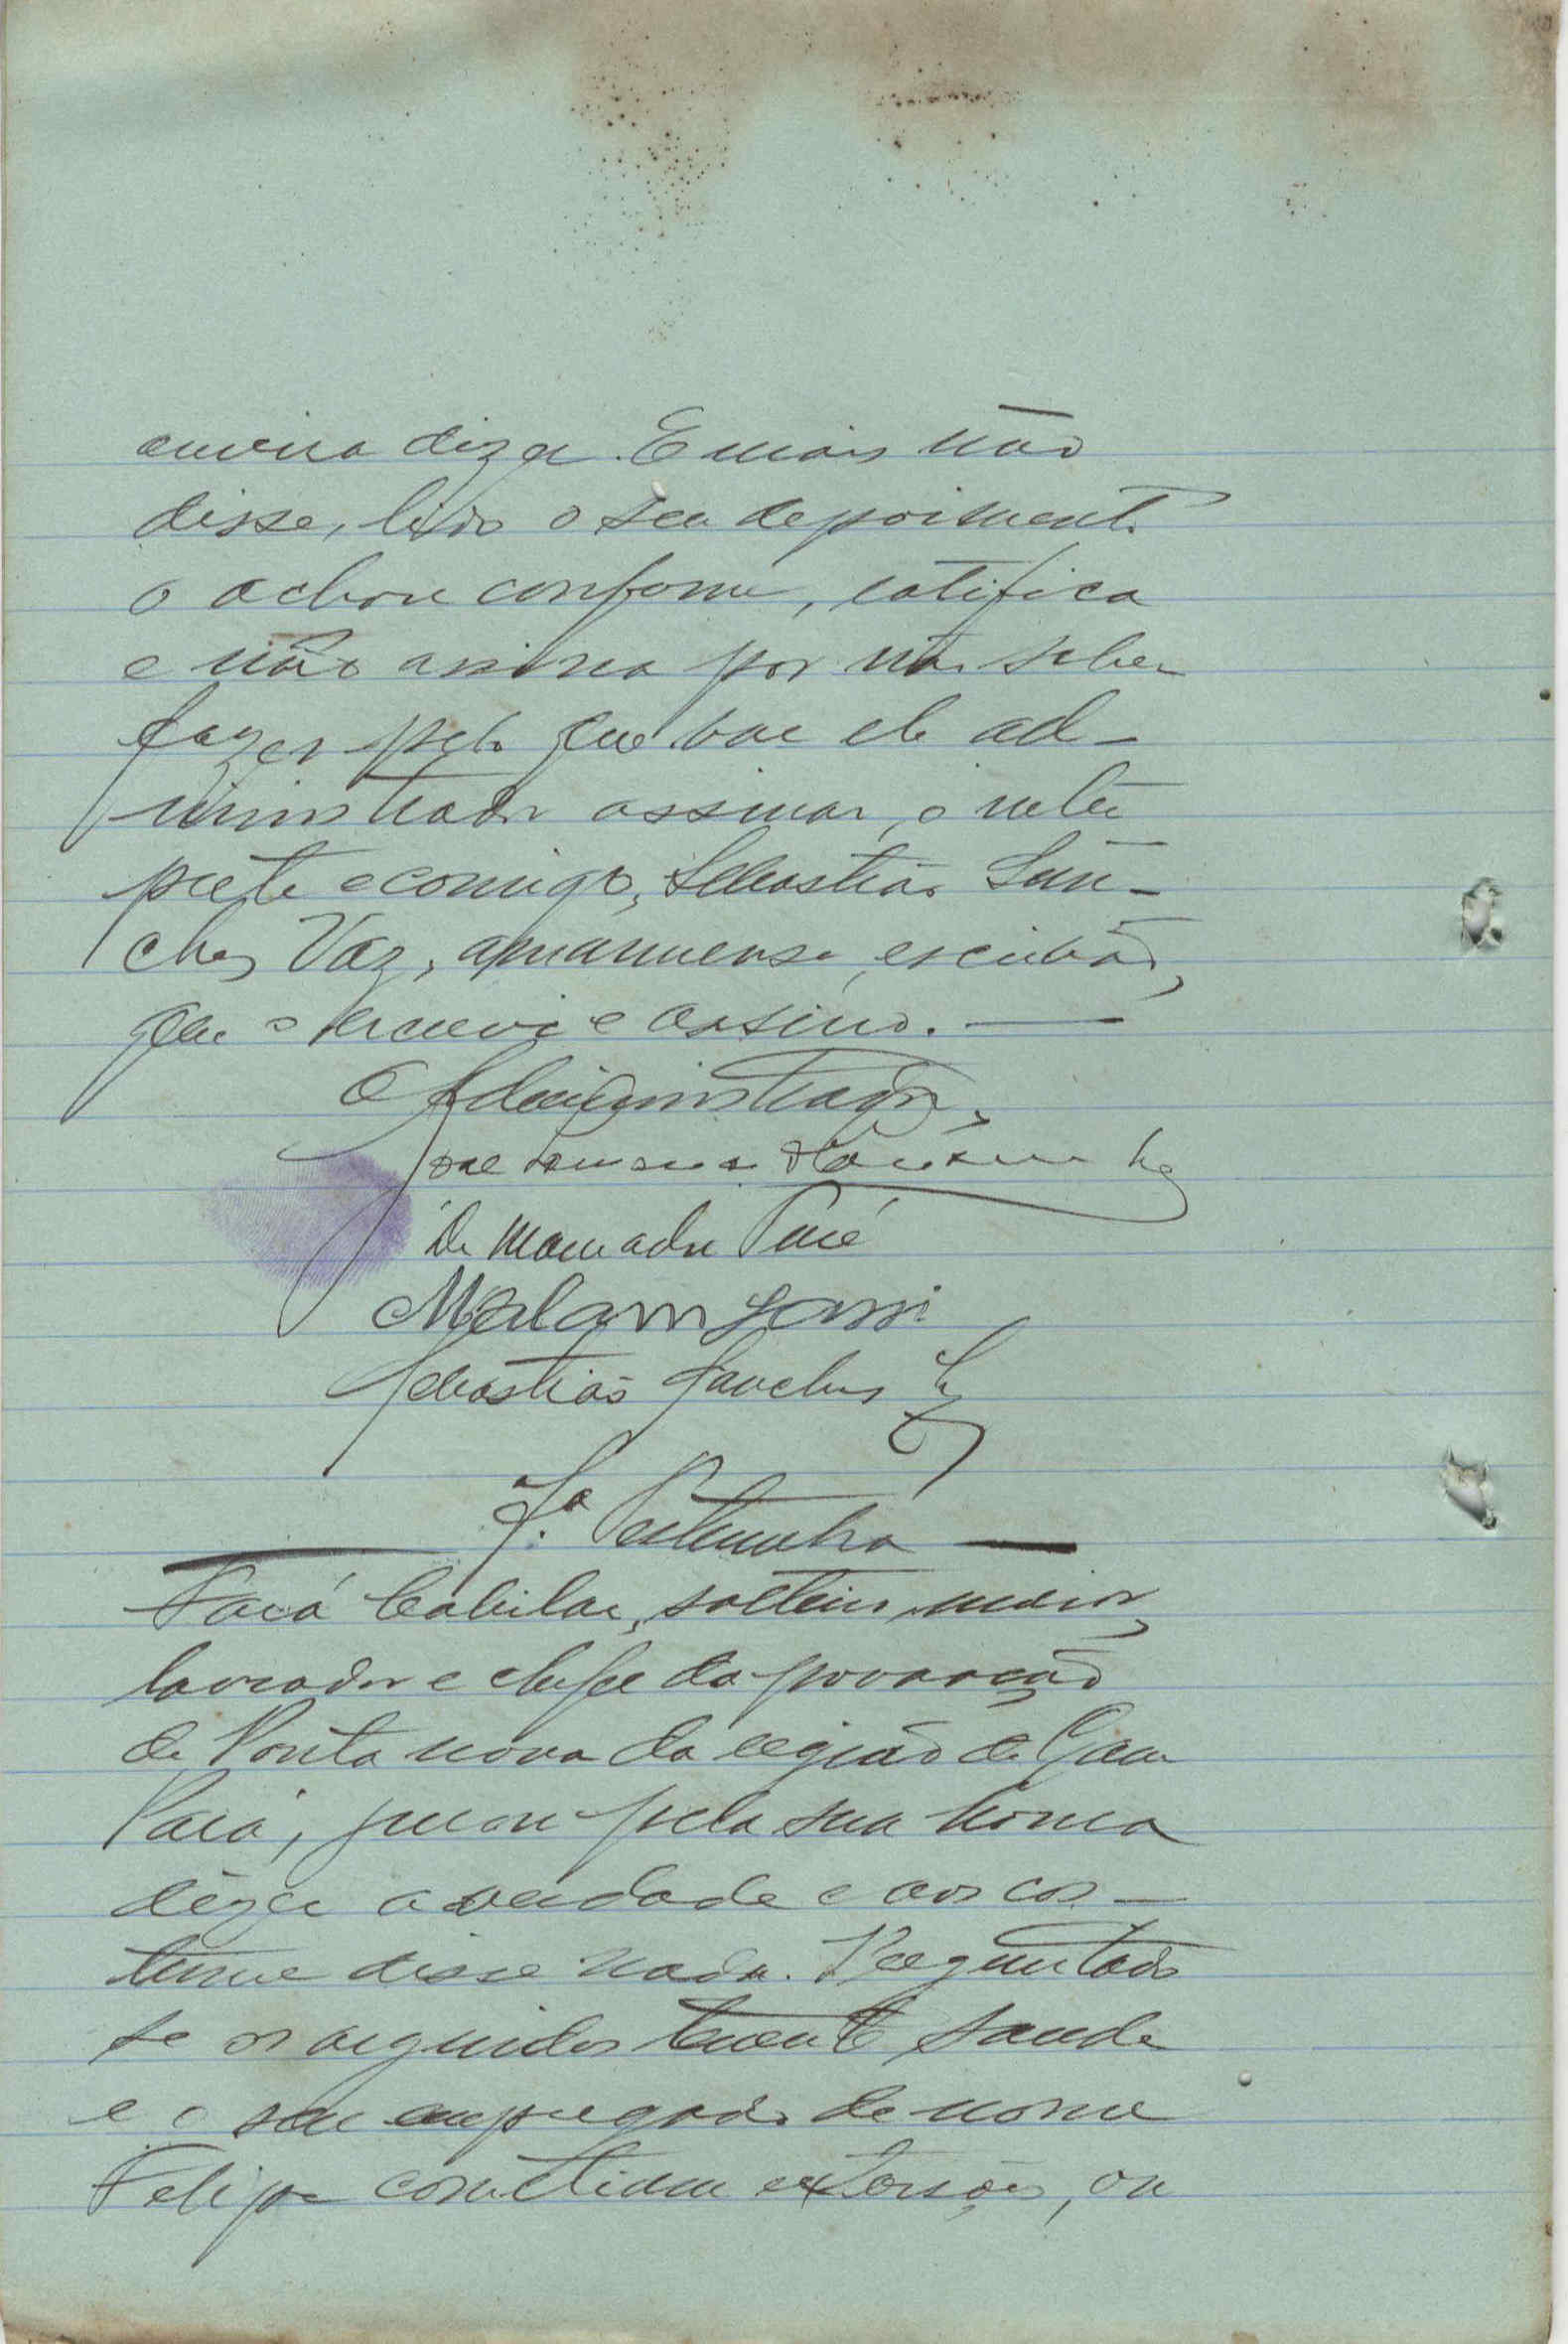 ouvira dizer. E mais não
disse, lido o seu depoimento
o achou conforme, ratifica
e não assina por não saber
fazer pelo que vae ele ad-
ministrador assinar, o intér
prete e comigo, Sebastião San-
ches Vaz, amanuense, escrivão,
que o escrevi e assino.
O Administrador,
De Mamadu
Malam Sani
Sebastião Sanches Vaz
7.ª Testemunha
lavrador e chefe da povoação
de Ponta nova da região de Gam
Pará, jurou pela sua honra
dizer a verdade e aos cos-
tume disse nada. Perguntado
se os arguidos tenente Saude
e o seu empregado de nome
Felipe cometiam extorsões, ou